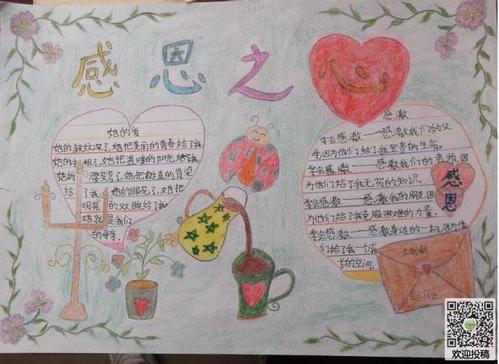 感恩之心
她的爱
她的皱纹深了,她把美丽的青春给了我
她的
了,她把温暖的阳光给了我
她的
了,她把
的脊梁
给了我。她的眼花了,她把
明亮的双眼给了我
她就是我们
的母亲。
感激
学会感激——感激我们的父
母,因为他们给了我宝贵的生命。
学会感激——感激我们的老师,因
为他们给了我无穷的知识。
学会感激——感激我的朋友,因
为他们给了我克服困难的力量。
学会感激——感激身边的一切,因为他
们给了我一个
长的空间。
感恩
欢迎投稿